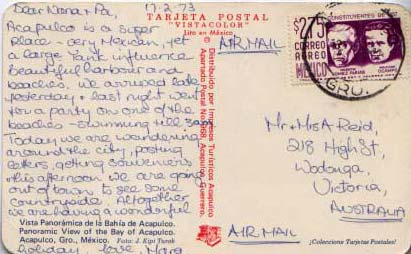 Dear Nana & Pa,
17-2-73
Acapulco is a super
place - very Mexican, yet
a large Yank influence
beautiful harbour and
beaches. We arrived late
yesterday & last night went
to a party on one of the
beaches - swimming till 3am
Today we are wandering
around the city, posting
letters, getting souvenirs
this afternoon we are going
out of town to see some
countryside. Altogether
we are having a wonderful
holiday, love, Marg
Vista Panorámica de la Bahía de Acapulco.
Panoramic View of the Bay of Acapulco.
Acapulco, Gro., México. Foto: J. Kipi Turok
TARJETA POSTAL
"VISTACOLOR"
Lito en México
Distribuido por Impresos Turísticos Acapulco
Apartado Postal No. 968, Acapulco, Guerrero.
AIR MAIL
$2.75
CONSTITUYENTES DE 1857
CORREO
AEREO
MEXICO
GRO.
Mr & Mrs A Reid,
218 High St,
Wodonga,
Victoria,
AUSTRALIA
AIR MAIL
¡Coleccione Tarjetas Postales!